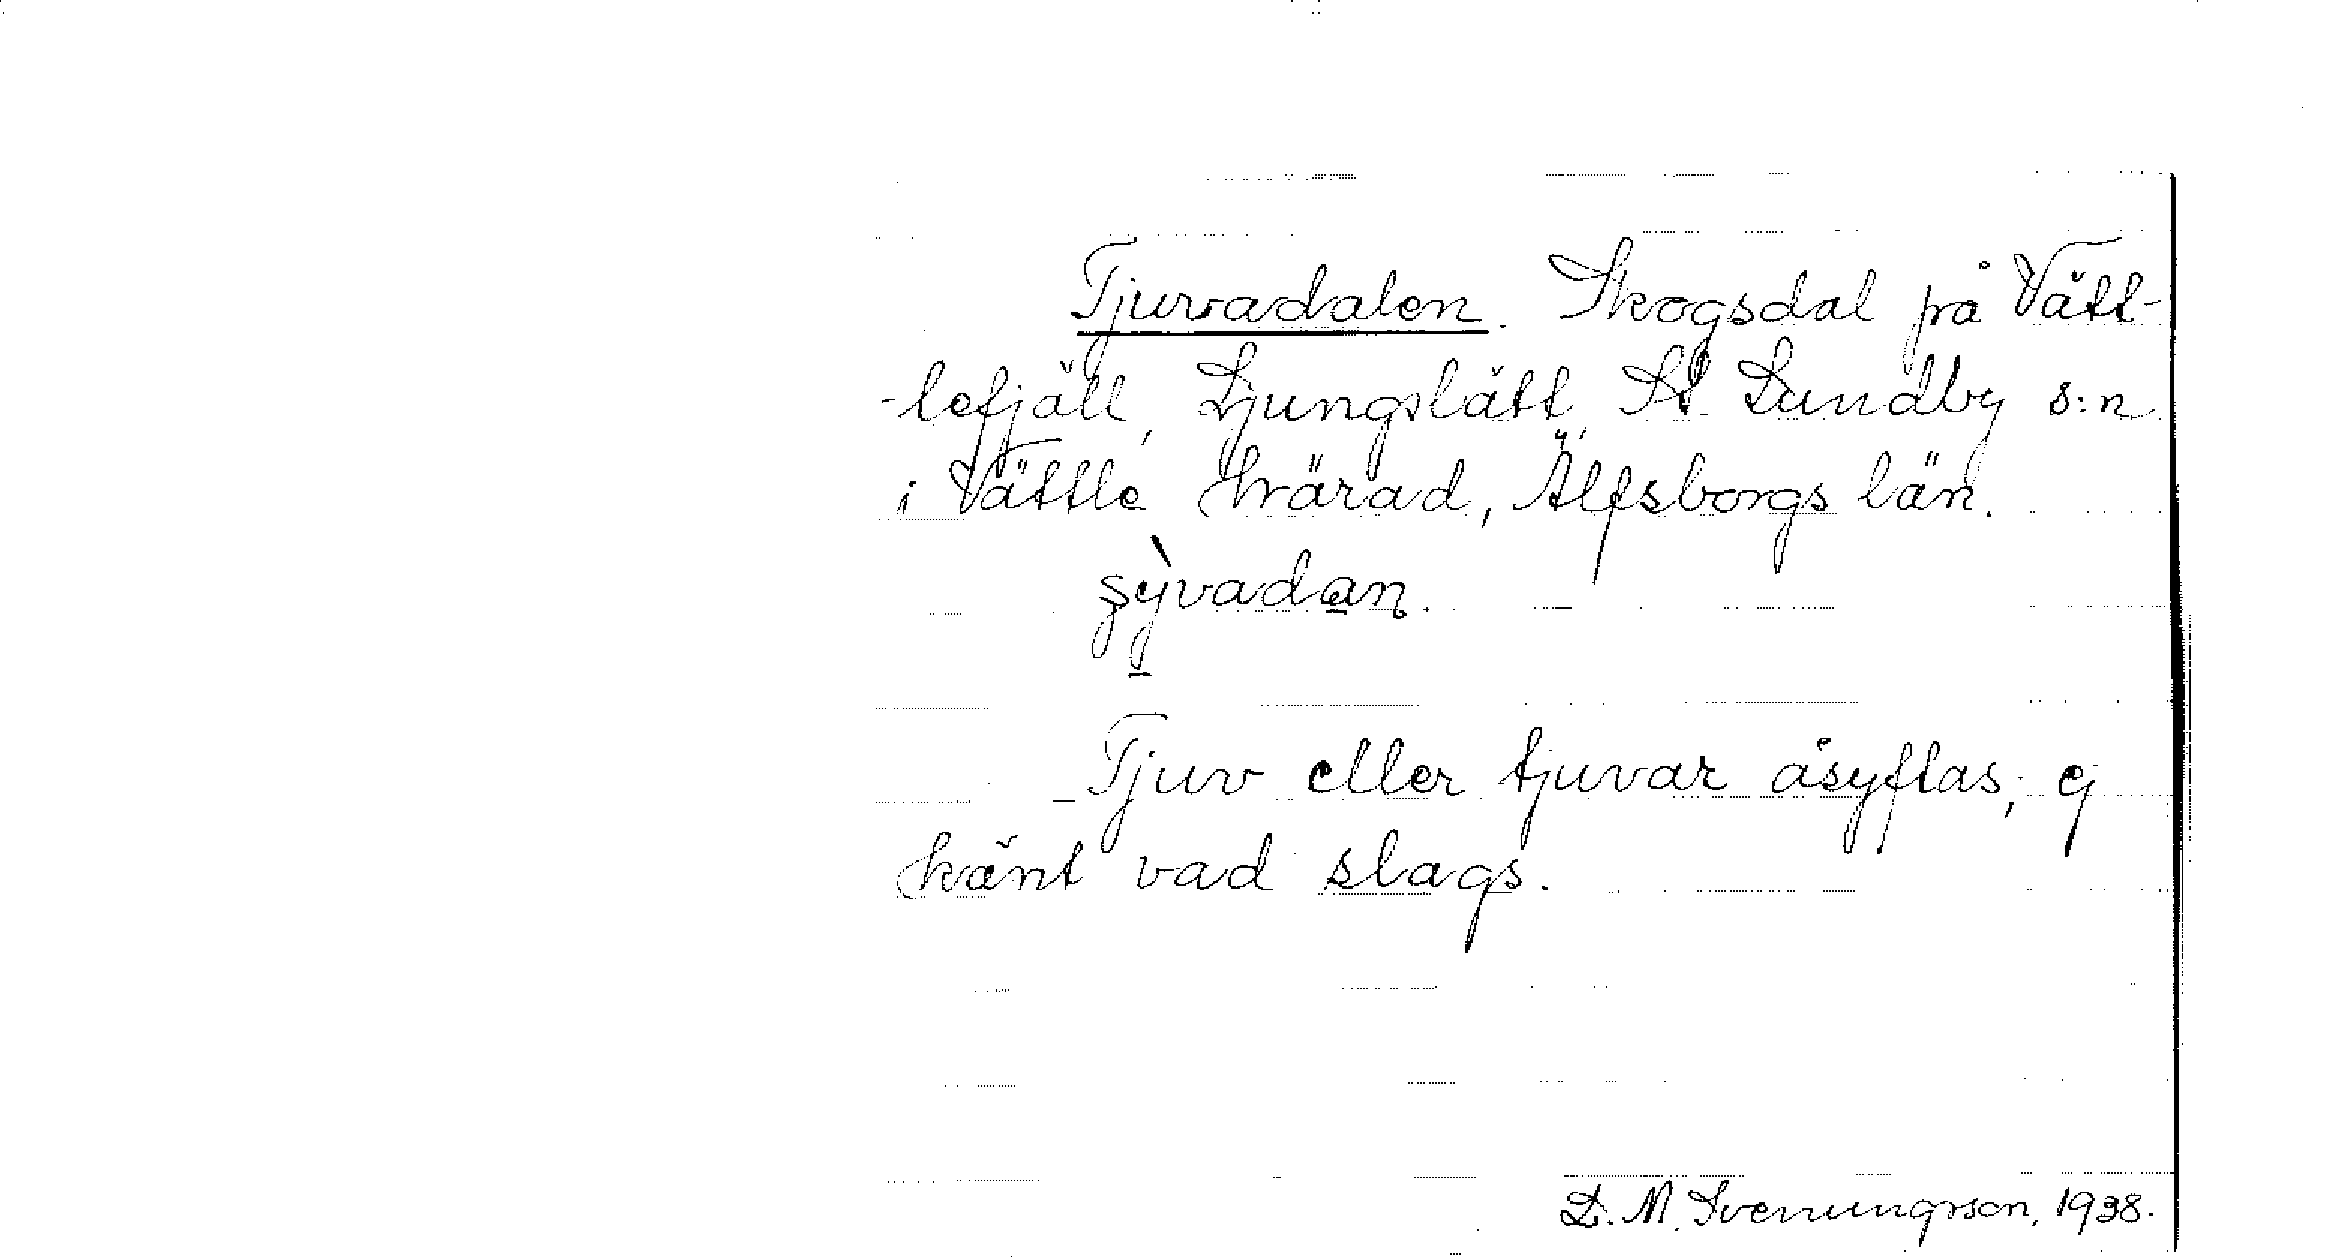 Tjuvadalen. Skogsdal på Vätt-
-lefjäll, Ljungslätt, St. Lundby s:n
i Vättle härad, Älfsborgs län.
sỳvadan.
Tjuv eller tjuvar åsyftas; ej
känt vad slags.
D. M. Svenungsson, 1938.